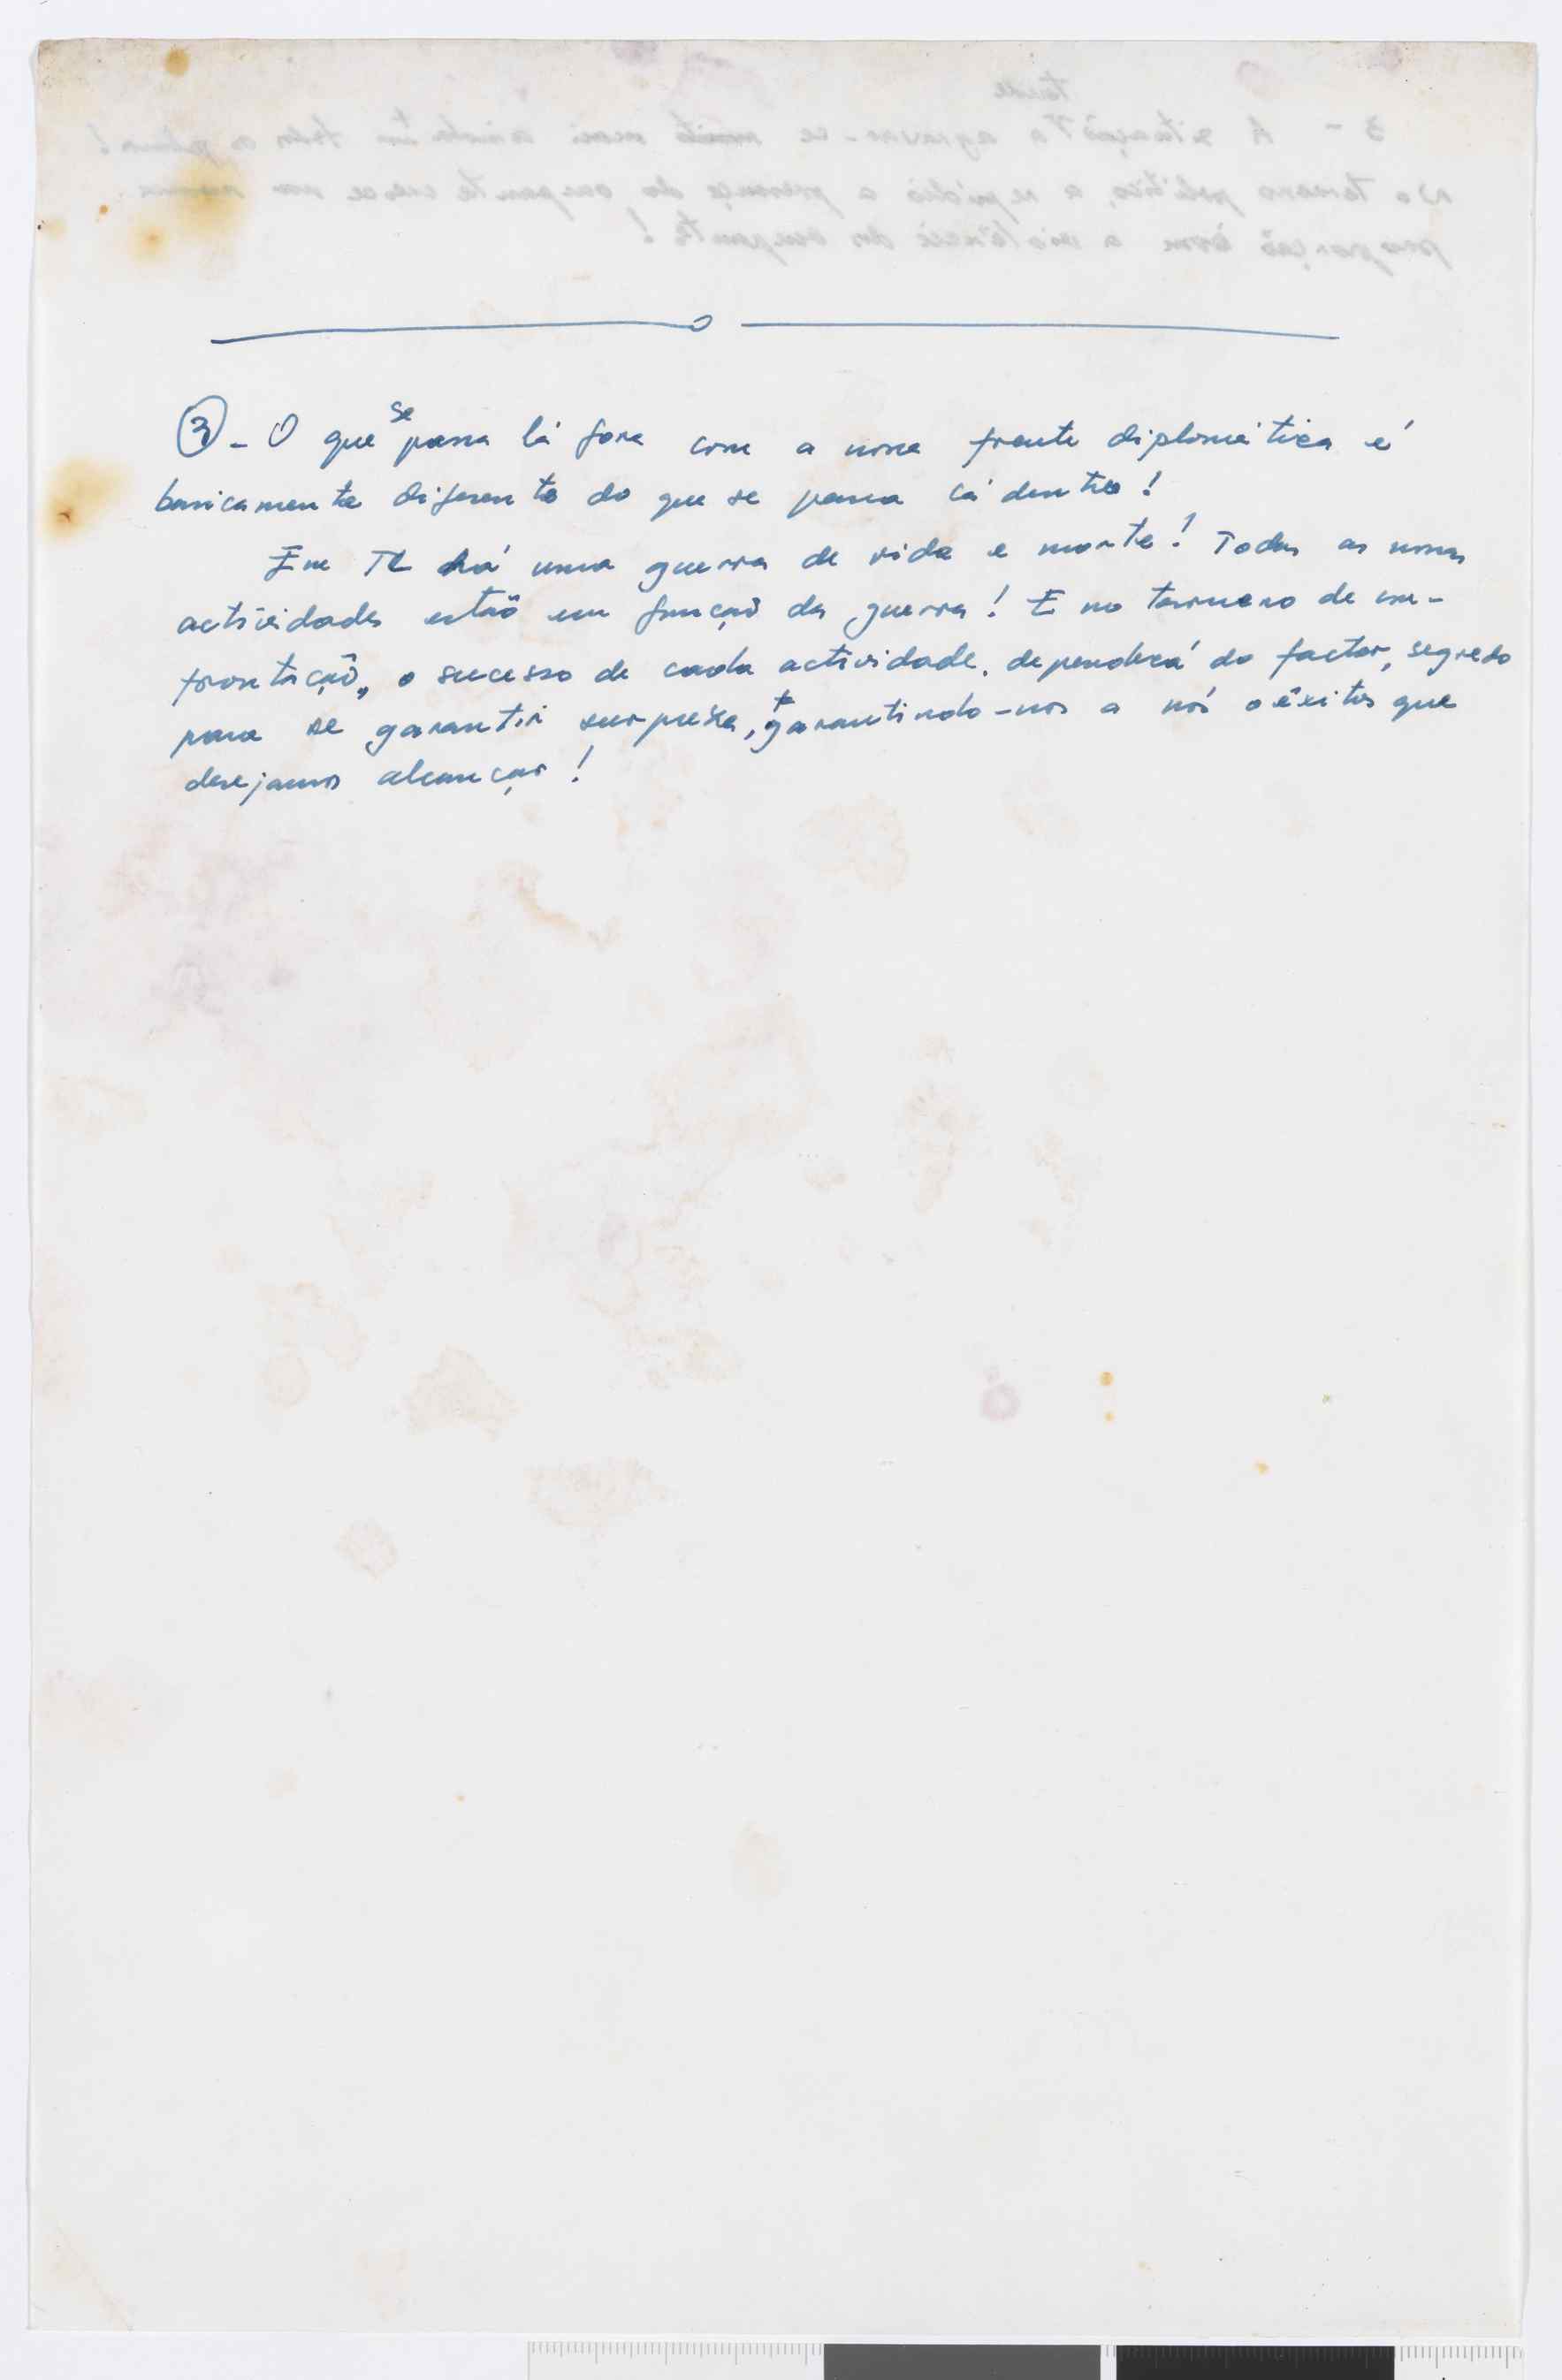 ③ - O que se passa lá fora com a nossa frente diplomática é
basicamente diferente do que se passa cá dentro!
Em TL há uma guerra de vida e morte! Todas as nossas
actividades estão em função da guerra! E no terreno de con-
frontação, o sucesso de cada actividade, dependerá do factor, segredo
para se garantir surpresa, garantindo-nos a nós o êxitos que
desejamos alcançar!